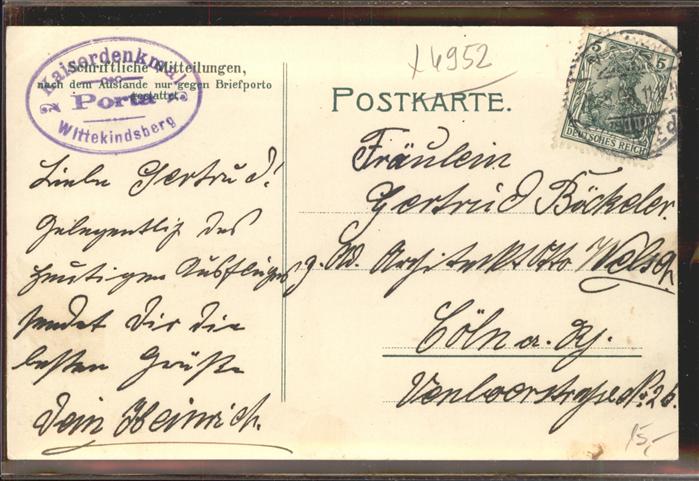 Kaiserdenkmal
Porta
Wittekindsberg
Schriftliche Mitteilungen,
nach dem Auslande nur gegen Briefporto
gestattet.
x4952
POSTKARTE.
5 5
DEUTSCHES REICH
Liebe Gertrud!
Gelegentlich des
heutigen Ausfluges
sendet Dir die
besten Grüße
Dein Heinrich.
Fräulein
Gertrud Böckeler.
p. Ad. Architekt Otto Welsch
Cöln a. Rh.
Venloerstraße No. 26.
15,-